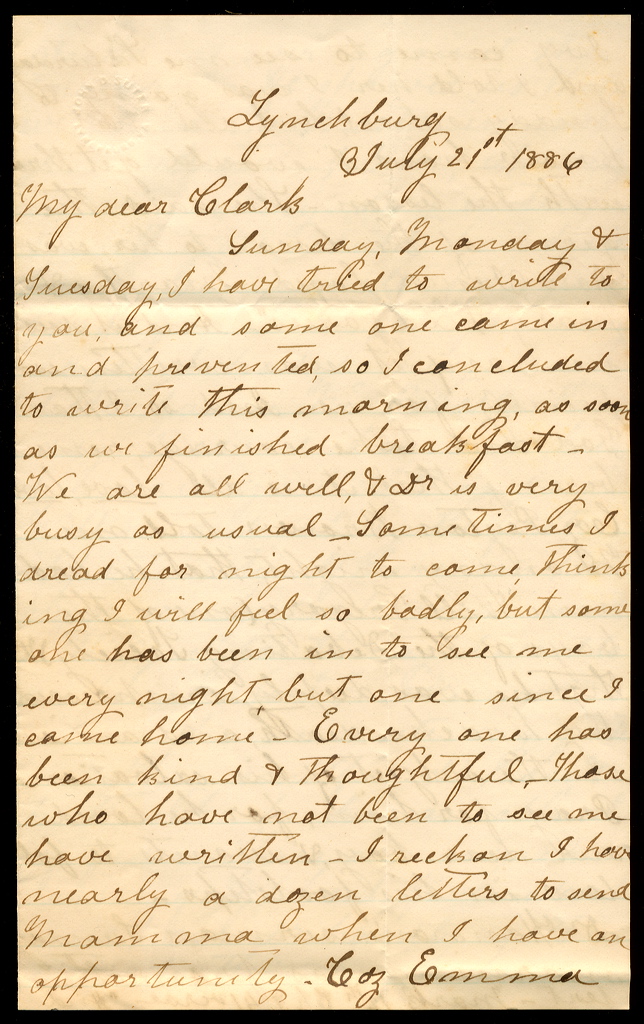 Lynchburg
July 21st 1886
My dear Clark
Sunday, Monday &
Tuesday, I have tried to write to
you, and some one came in
and prevented, so I concluded
to write this morning, as soon
as we finished breakfast -
We are all well, & Dr is very
busy as usual - Sometimes I
dread for night to come, think
ing I will feel so badly, but some
one has been in to see me
every night, but one since I
came home - Every one has
been kind & thoughtful, - Those
who have not been to see me
have written - I reckon I have
nearly a dozen letters to send
Mamma when I have an
opportunity - Coz Emma